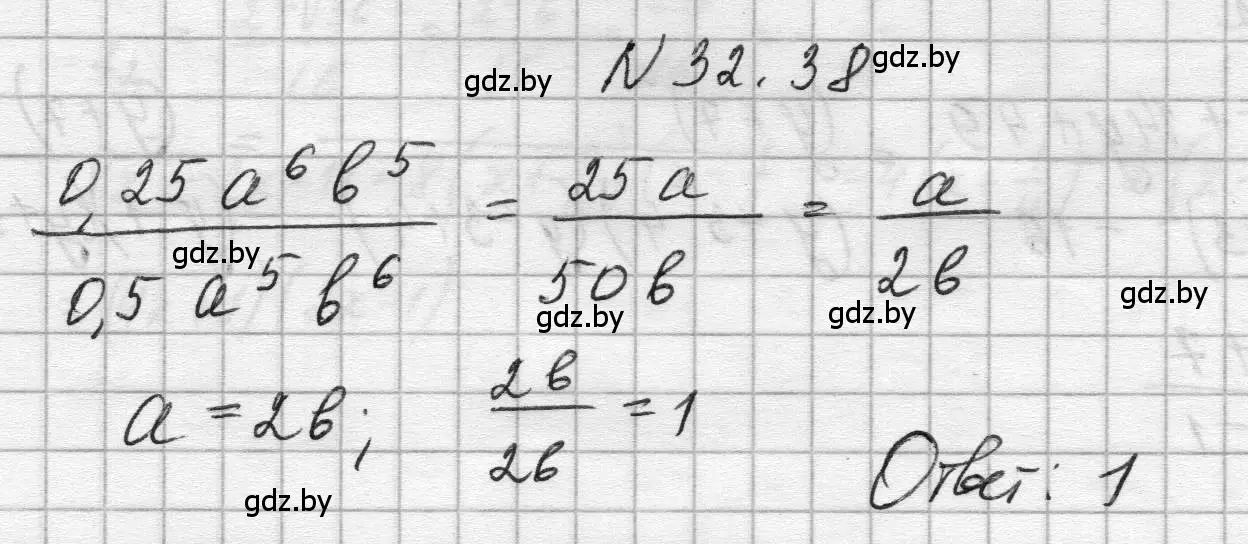 gdz.by N 32.38 gdz.by
0,25 a⁶ b⁵ / 0,5 a⁵ b⁶ = 25 a / 50 b = a / 2b
gdz.by gdz.by gdz.by gdz.by
a = 2b; 2b / 2b = 1
gdz.by Ответ: 1